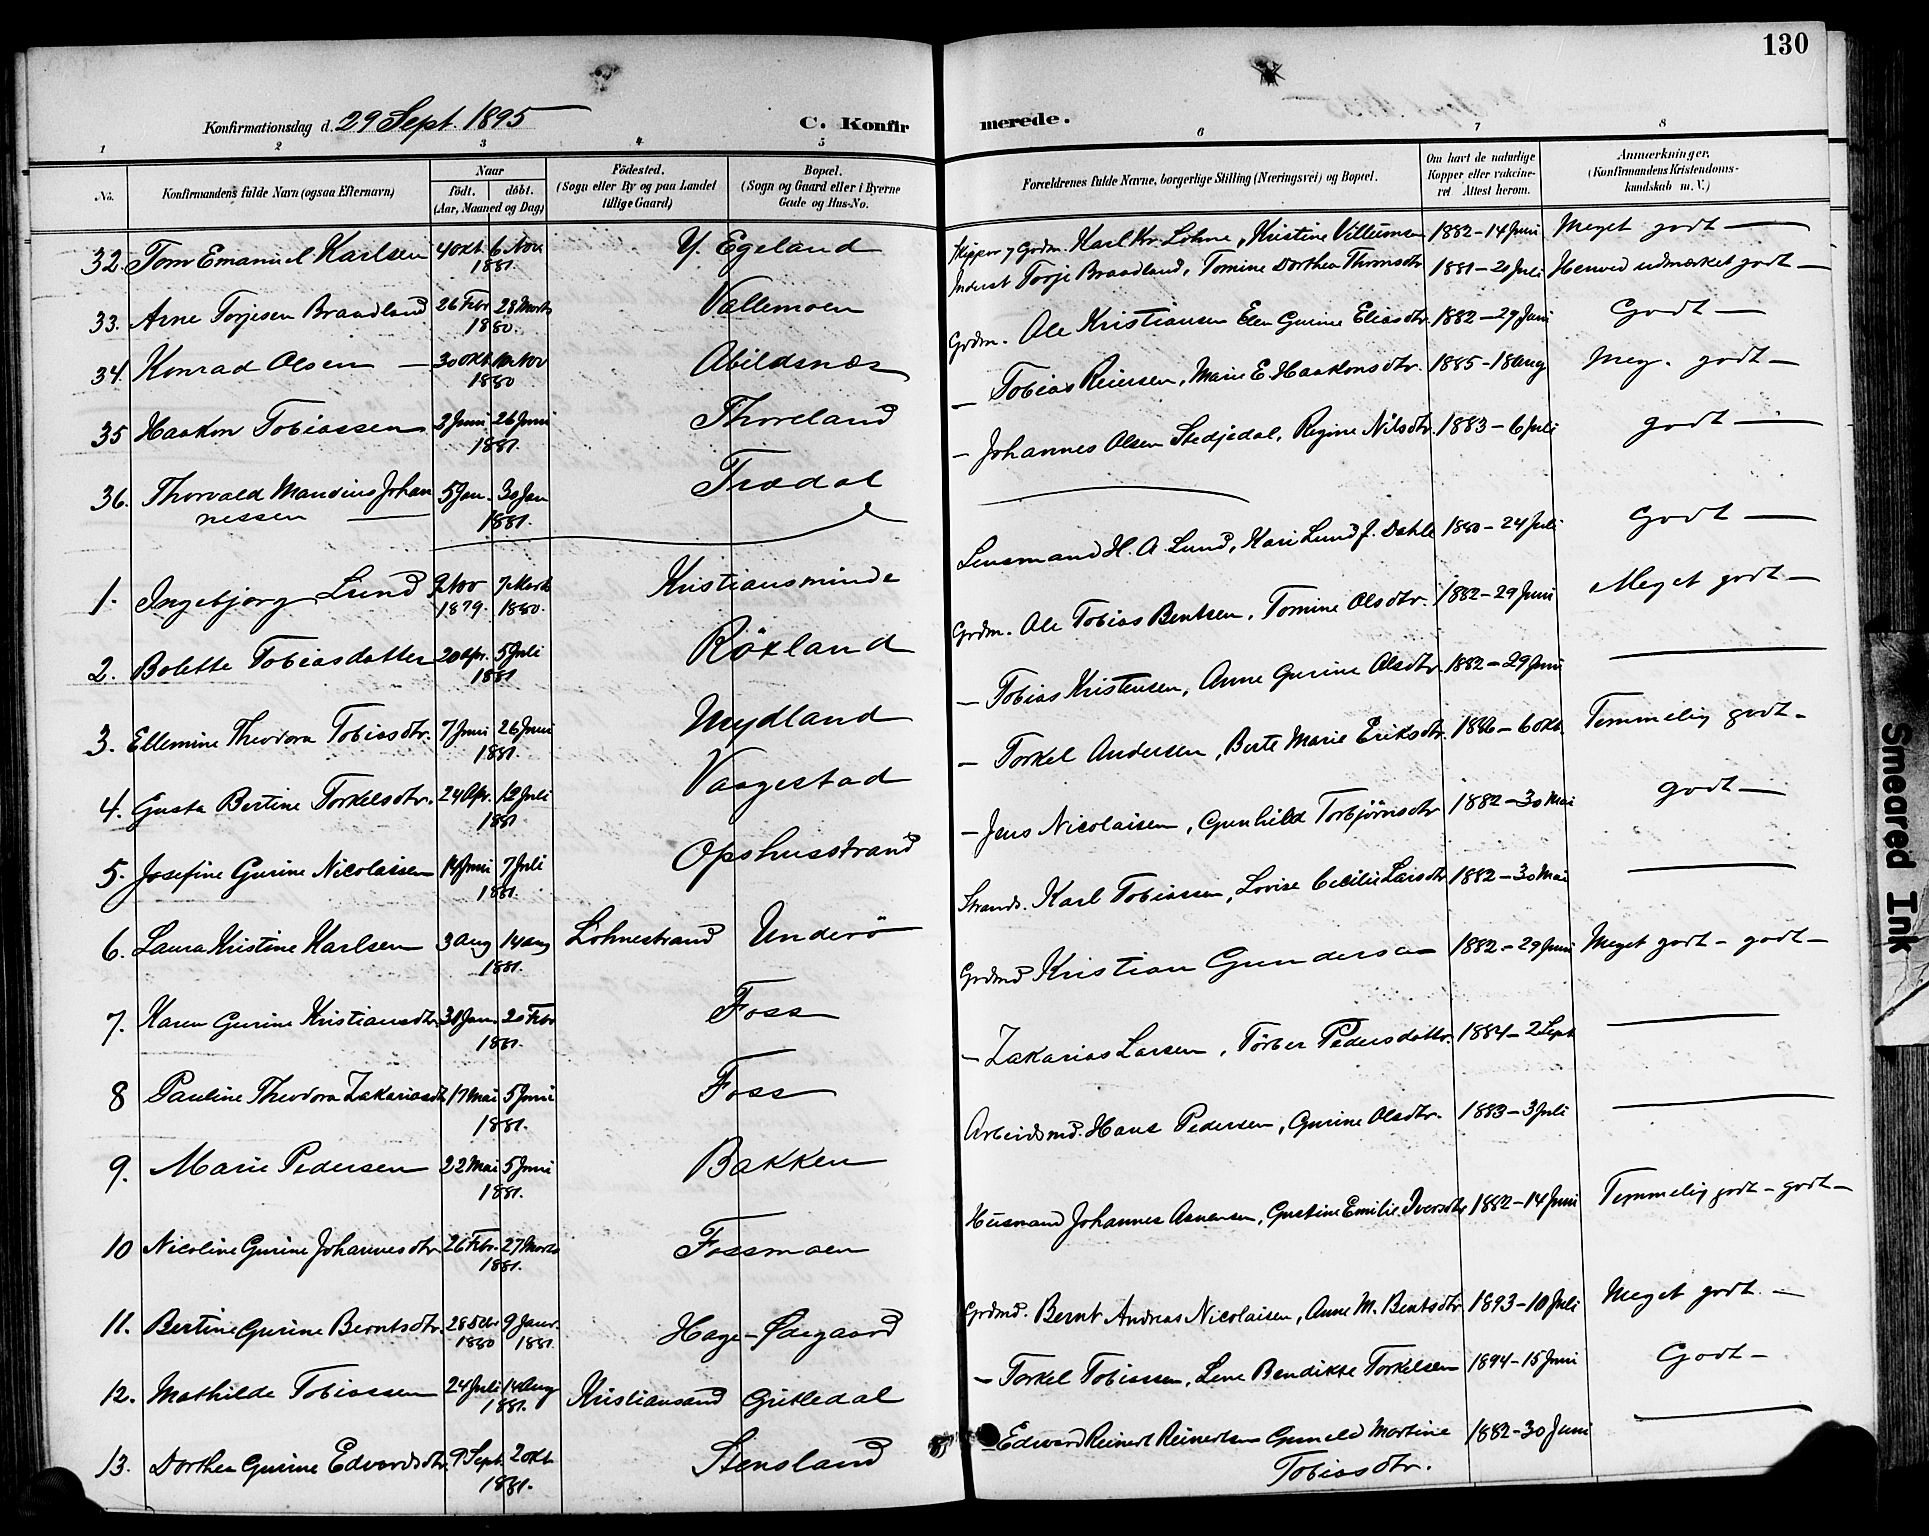 130
Konfirmationsdag d. 29 Sept. 1895
C. Konfirmerede.
1 2 3 4 5 6 7 8
No.
Konfirmandens fulde Navn (ogsaa Efternavn)
Naar
født. døbt.
(Aar, Maaned og Dag)
Fødested.
(Sogn eller By og paa Landet
tillige Gaard)
Bopæl.
(Sogn og Gaard eller i Byerne
Gade og Hus-No.
Forældrenes fulde Navne, borgerlige Stilling (Næringsvei) og Bopæl.
Om havt de naturlige
Kopper eller vakcine-
ret Attest herom.
Anmærkninger.
(Konfirmandens Kristendoms-
kundskab m. V.)
32. Tom Emanuel Karlsen 4 Okt 6 Nov 1881. Y. Egeland Skipper & Grdm. Karl Kr. Lohne, Kristine Villumsen 1882 - 14 Juni Meget godt —
33. Arne Torjesen Braadland 26 Febr 28 Marts 1880. Vallemoen Inderst Torje Braadland, Tomine Dorthea Thomsdtr 1881 - 20 Juli Henved udmærket godt —
34. Konrad Olsen — 30 Okt. Nov 1880 Abildsnæs Grdm. Ole Kristiansen Elen Gurine Eliasdtr. 1882 - 29 Juni Godt —
35 Haakon Tobiassen 2 Juni 26 Juni 1881. Thoreland — Tobias Reiersen, Marie E. Haakonsdtr. 1885 - 18 Aug Meg. godt —
36. Thorvald Mandius Johan
nessen — 5 Jan. 30 Jan 1881. Trædal — Johannes Olsen Stedjedal, Regine Nilsdtr. 1883 - 6 Juli godt —
1. Ingebjorg Lund Nov 1879. 7 Marts 1880. Kristiansminde Lensmand H. A. Lund, Kari Lund f. Dahle 1880 - 24 Juli Godt —
2. Bolette Tobiasdatter 20 Apr. 5 Juli 1881 Röxland Grdm. Ole Tobias Bentsen, Tomine Olsdtr. 1882 - 29 Juni Meget godt —
3. Ellemine Theodora Tobiasdtr. 7 Juni 26 Juni 1881. Mydland — Tobias Kristensen, Anne Gurine Olsdtr. 1882 - 29 Juni —
4. Gusta Bertine Torkelsdtr. 24 Apr. 12 Juli 1881 Vaagestad — Torkel Andersen, Berte Marie Eriksdtr. 1886 - 6 Okt. Temmelig godt —
5. Josefine Gurine Nicolaisen 14 Juni 7 Juli 1881. Opshusstrand — Jens Nicolaisen, Gunhild Torbjörnsdtr 1882 - 30 Mai godt —
6. Laura Kristine Karlsen 3 Aug 14 Aug 1881. Löhnestrand Underö Strands. Karl Tobiassen, Lovise Cecilie Larsdtr 1882 - 30 Mai —
7. Karen Gurine Kristiansdtr. Jan. 20 Febr 1881. Foss Grdmd Kristian Gundersen 1882 - 29 Juni Meget godt - godt —
8 Pauline Theodora Zakariasdtr 17 Mai 5 Juni 1881. Foss — Zakarias Larsen, Törber Pedersdatter. 1884 - 2 Sept —
9. Marie Pedersen 22 Mai 5 Juni 1881. Bakken Arbeidsmd. Hans Pedersen, Gurine Olsdtr. 1883 - 3 Juli —
10 Nicoline Gurine Johannesdtr. 26 Febr. 27 Marts 1881. Fossmoen Husmand Johannes Asnersen, Gustine Emilie Iversdtr 1882 - 14 Juni Temmelig godt - godt —
11. Bertine Gurine Berntsdtr. 28 1880 9 Januar. 1881. Hage-Ødegaard Grdmd. Bernt Andreas Nicolaisen, Anne M. Bentsdtr. 1893 - 10 Juli Meget godt. —
12. Mathilde Tobiassen 24 Juli 14 Aug 1881. Kristiansand Gritledal — Torkel Tobiassen, Lene Bendikte Torkelsen 1894 - 15 Juni Godt —
13. Dorthea Gurine Edvardsdtr. 9 Sept. 2 Okt 1881. Stensland — Edvard Reinert Reinertsen Gunild Martine
Tobiasdtr. 1882 - 30 Juni —
Smeared Ink